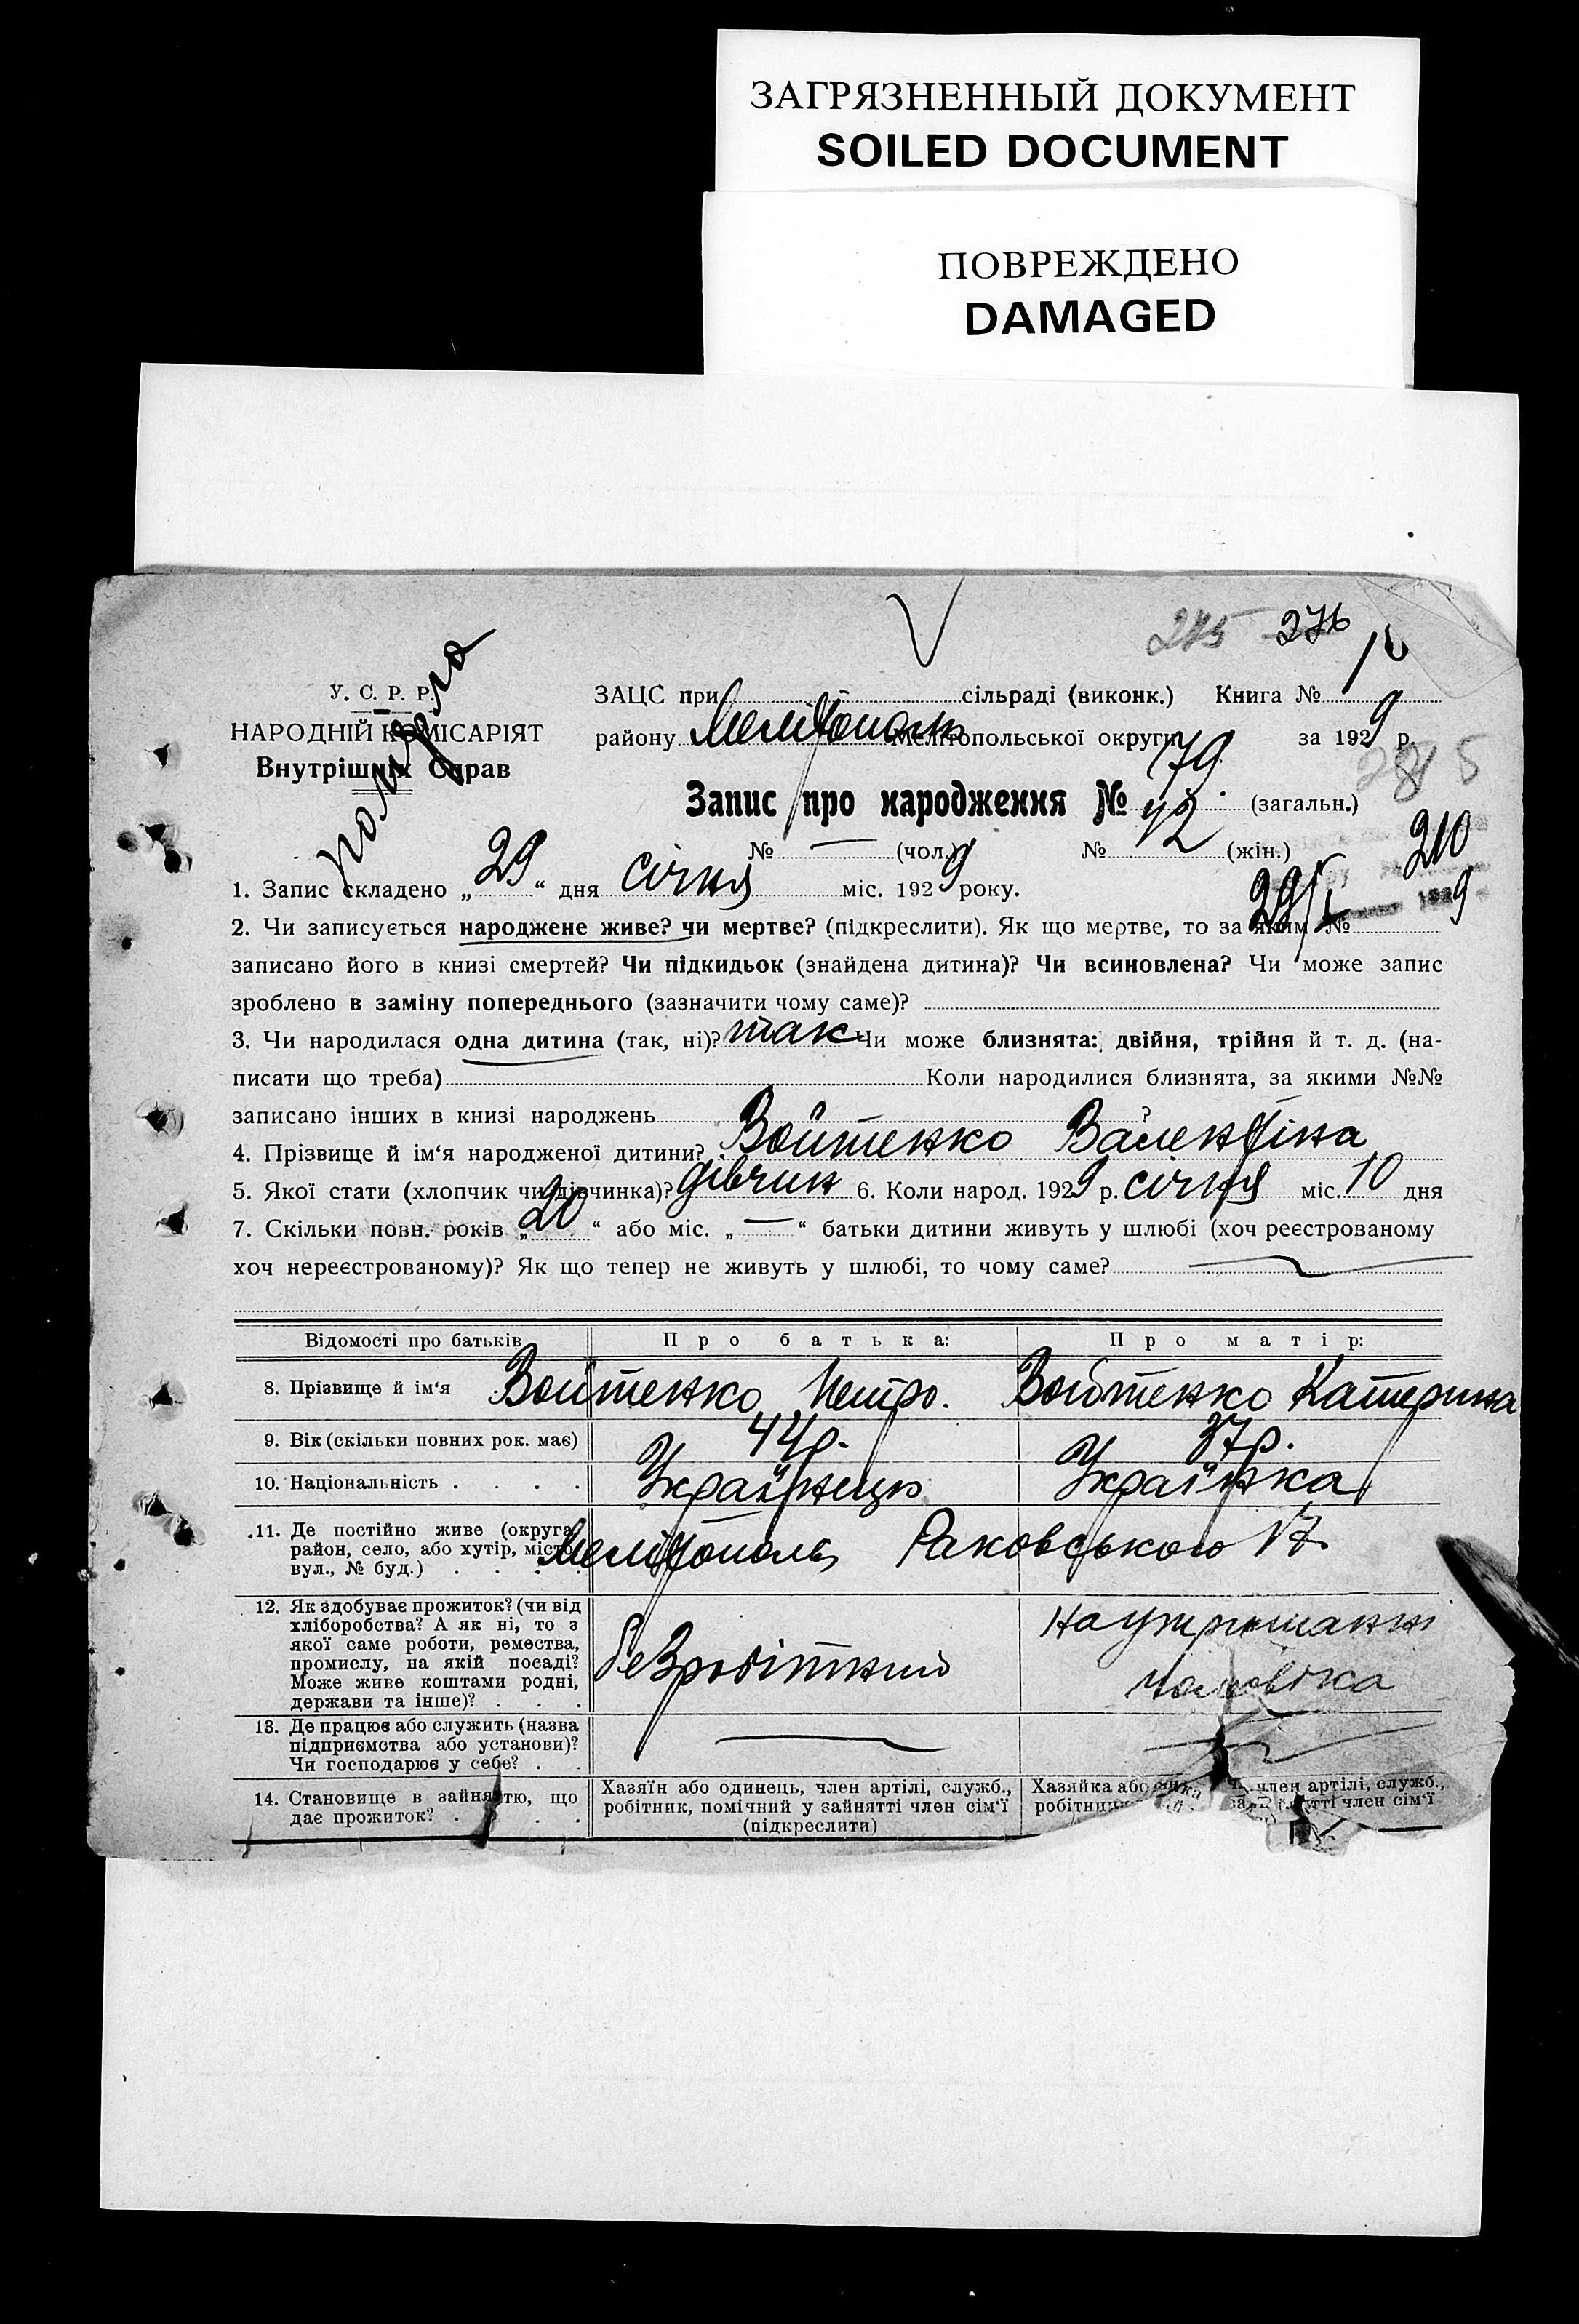 ЗАГРЯЗНЕННЫЙ ДОКУМЕНТ
SOILED DOCUMENT
ПОВРЕЖДЕНО
DAMAGED
275 276
У. С. Р. Р.
НАРОДНІЙ КОМІСАРІЯТ
Внутрішніх Справ
померла
ЗАЦС при сільраді (виконк.) Книга №
району Мелітополь Мелітопольської округи за 1929 р.
285
Запис про народження № 79 (загальн.)
№ — (чол.) № 42 (жін.)
210
1. Запис складено „29“ дня січня міс. 1929 року.
29/I 1929
2. Чи записується народжене живе? чи мертве? (підкреслити). Як що мертве, то за яким №
записано його в книзі смертей? Чи підкидьок (знайдена дитина)? Чи всиновлена? Чи може запис
зроблено в заміну попереднього (зазначити чому саме)?
3. Чи народилася одна дитина (так, ні)? так Чи може близнята: двійня, трійня й т. д. (на-
писати що треба) Коли народилися близнята, за якими №№
записано інших в книзі народжень ?
4. Прізвище й ім‘я народженої дитини? Войтенко Валентіна
5. Якої стати (хлопчик чи дівчинка)? дівчин 6. Коли народ. 1929 р. січня міс. 10 дня
7. Скільки повн. років „20“ або міс. „—“ батьки дитини живуть у шлюбі (хоч реєстрованому
хоч нереєстрованому)? Як що тепер не живуть у шлюбі, то чому саме?
Відомості про батьків Про батька: Про матір:
8. Прізвище й ім‘я Войтенко Петро. Войтенко Катерина
9. Вік (скільки повних рок. має) 44р. 37р.
10. Національність . . . . Українець Українка
11. Де постійно живе (округа,
район, село, або хутір, місто,
вул., № буд.) . . . . Мелітополь Раковського 17
12. Як здобуває прожиток? (чи від
хліборобства? А як ні, то з
якої саме роботи, ремества,
промислу, на якій посаді?
Може живе коштами родні,
держави та інше)? . . .
безробітний
на утриманні
чоловіка
13. Де працює або служить (назва
підприємства або установи)?
Чи господарює у себе? . .
14. Становище в зайняттю, що
дає прожиток? . . . .
Хазяїн або одинець, член артілі, служб.,
робітник, помічний у зайнятті член сім‘ї
(підкреслити)
Хазяйка або член артілі, служб.,
член сім‘ї